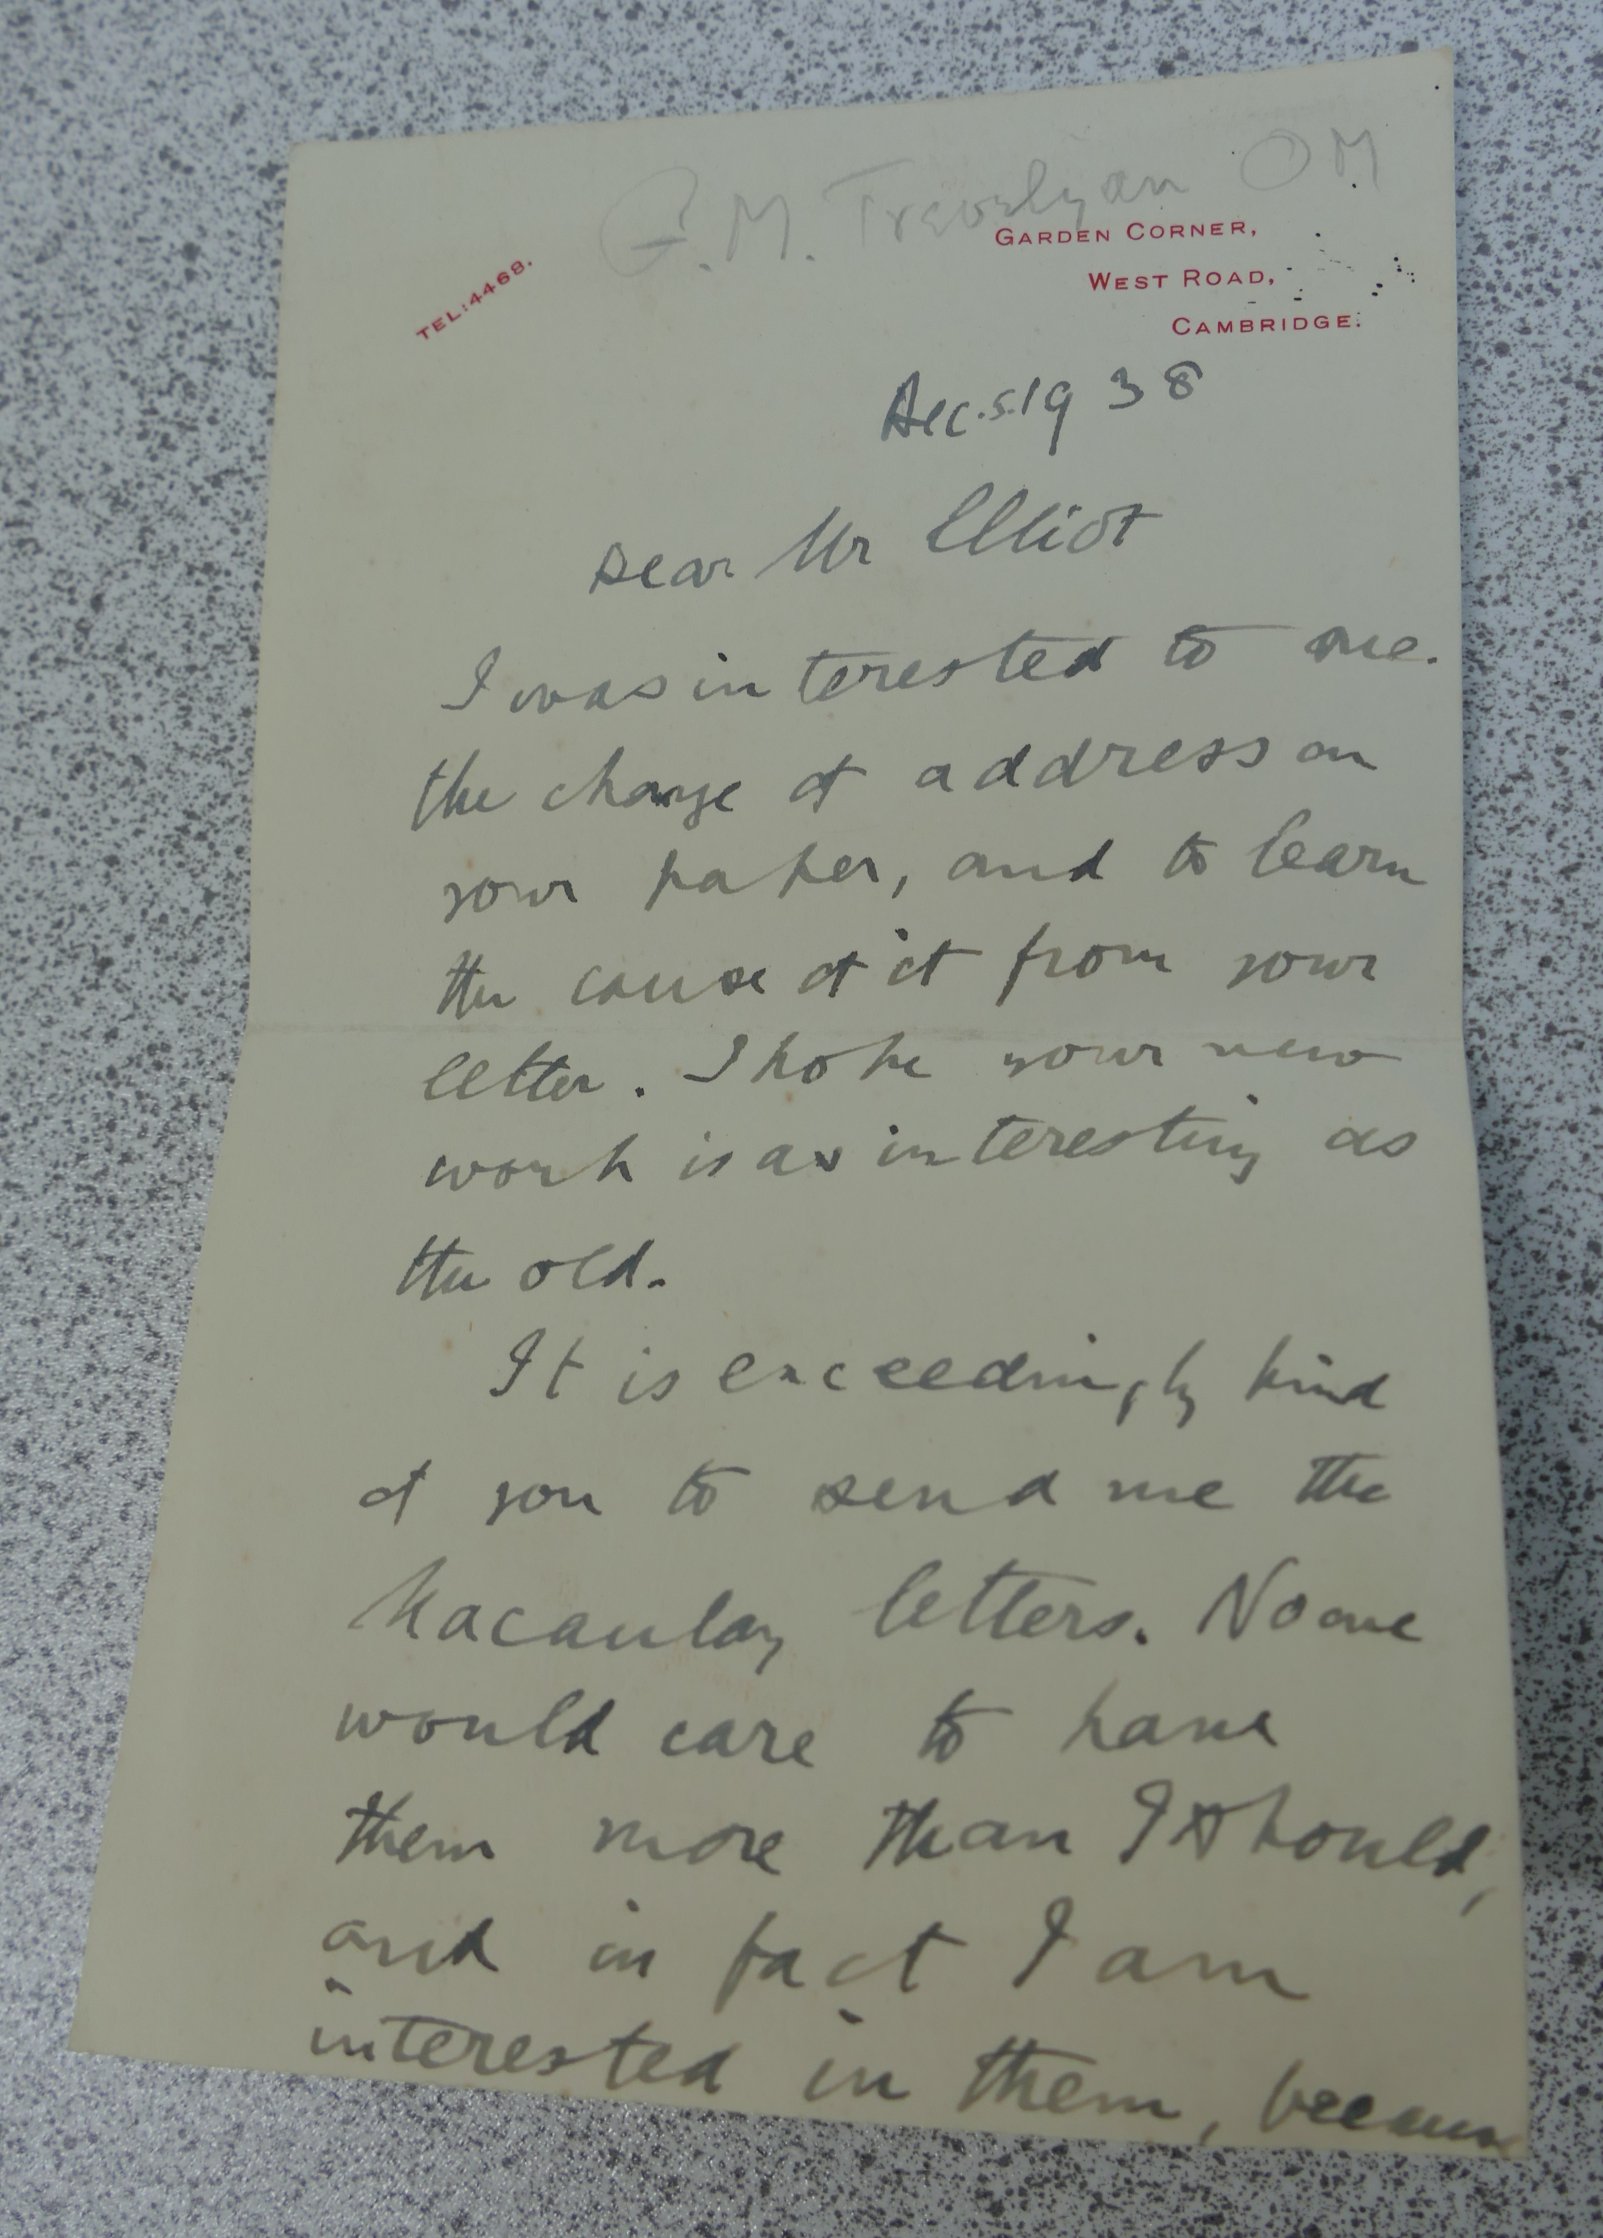 G.M. Trevelyan OM
TEL: 4468.
GARDEN CORNER,
WEST ROAD,
CAMBRIDGE.
Dec. 5. 1938
Dear Mr Elliot
I was interested to see
the change of address on
your paper, and to learn
the cause of it from your
letter. I hope your new
work is as interesting as
the old.
It is exceedingly kind
of you to send me the
Macaulay letters. No one
would care to have
them more than I should,
and in fact I am
interested in them, because